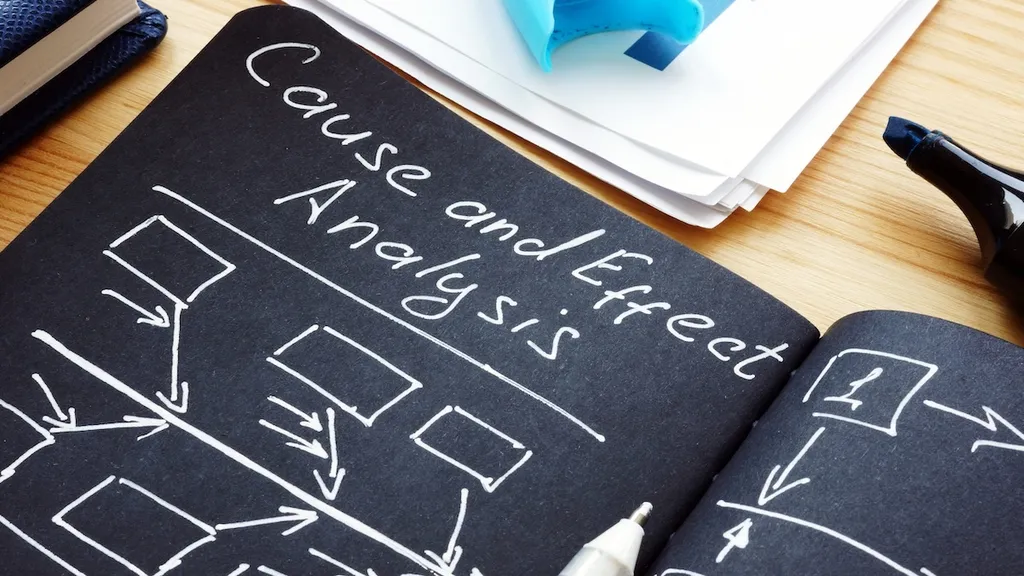 Cause and Effect
Analysis
1